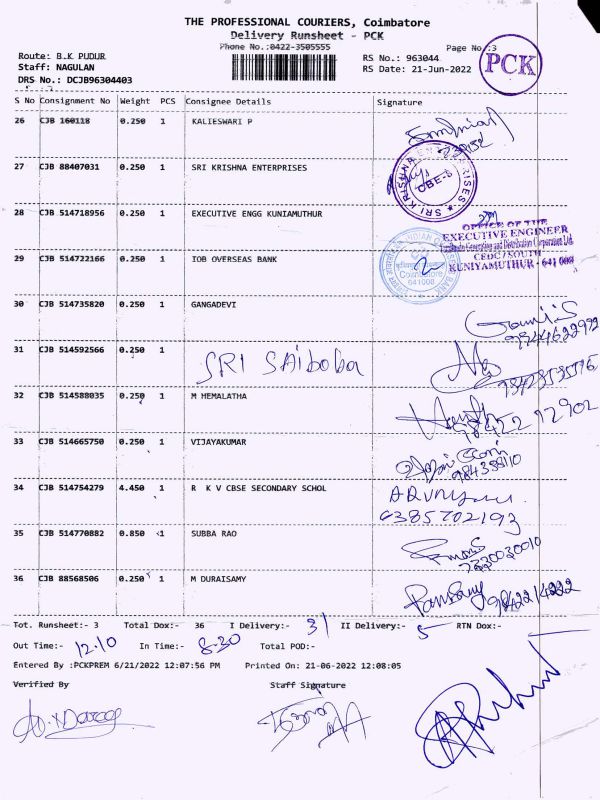 THE PROFESSIONAL COURIERS, Coimbatore
Delivery Runsheet - PCK
Phone No.:0422-3505555
Page No.:3
Route: B.K PUDUR
Staff: NAGULAN
DRS No.: DCJB96304403
RS No.: 963044
RS Date: 21-Jun-2022
PCK
S No Consignment No Weight PCS Consignee Details Signature
26 CJB 160118 0.250 1 KALIESWARI P
27 CJB 88407031 0.250 1 SRI KRISHNA ENTERPRISES
SRI KRISHNA ENTERPRISES
CBE-8
28 CJB 514718956 0.250 1 EXECUTIVE ENGG KUNIAMUTHUR
OFFICE OF THE
EXECUTIVE ENGINEER
Generating and Distribution Corporation Ltd
CEDC/SOUTH
KUNIYAMUTHUR - 641 008
29 CJB 514722166 0.250 1 IOB OVERSEAS BANK
Coimbatore
641008
30 CJB 514735820 0.250 1 GANGADEVI
31 CJB 514592566 0.250 1 SRI Saibaba
32 CJB 514588035 0.250 1 M HEMALATHA
33 CJB 514665750 0.250 1 VIJAYAKUMAR
34 CJB 514754279 4.450 1 R K V CBSE SECONDARY SCHOL
6385702193
35 CJB 514770882 0.850 1 SUBBA RAO
36 CJB 88568506 0.250 1 M DURAISAMY
Tot. Runsheet:- 3 Total Dox:- 36 I Delivery:- 31 II Delivery:- 5 RTN Dox:-
Out Time:- 12.10 In Time:- 8.30 Total POD:-
Entered By :PCKPREM 6/21/2022 12:07:56 PM Printed On: 21-06-2022 12:08:05
Verified By Staff Signature